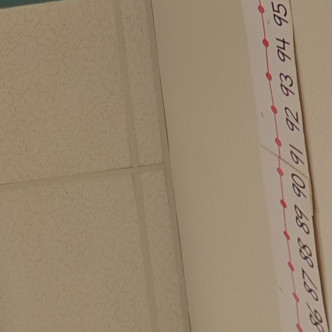 86 87 88 89 90 91 92 93 94 95